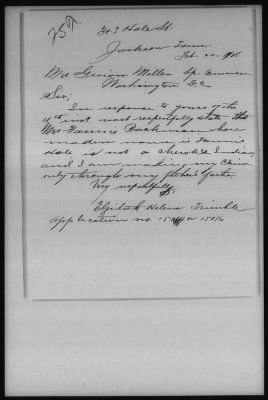 343 Hale St.
Jackson Tenn
Mr Guion Miller Sp. Commr
Washington D.C.
Sir;
In response to yours of the
inst most respectfully state, that
Mrs Fannie Buckman whose
maiden name is Fannie
Hale, is not a Cherokee Indian,
and I am making my claim
only through my father's
Very respectfully
Elizabeth Helena Trimble
application no. 15014 or 15016